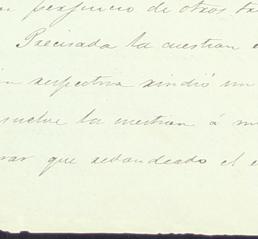 perjuicio de otros
Precisada la cuestion
respectiva rindió un
suelve la cuestion á
que el